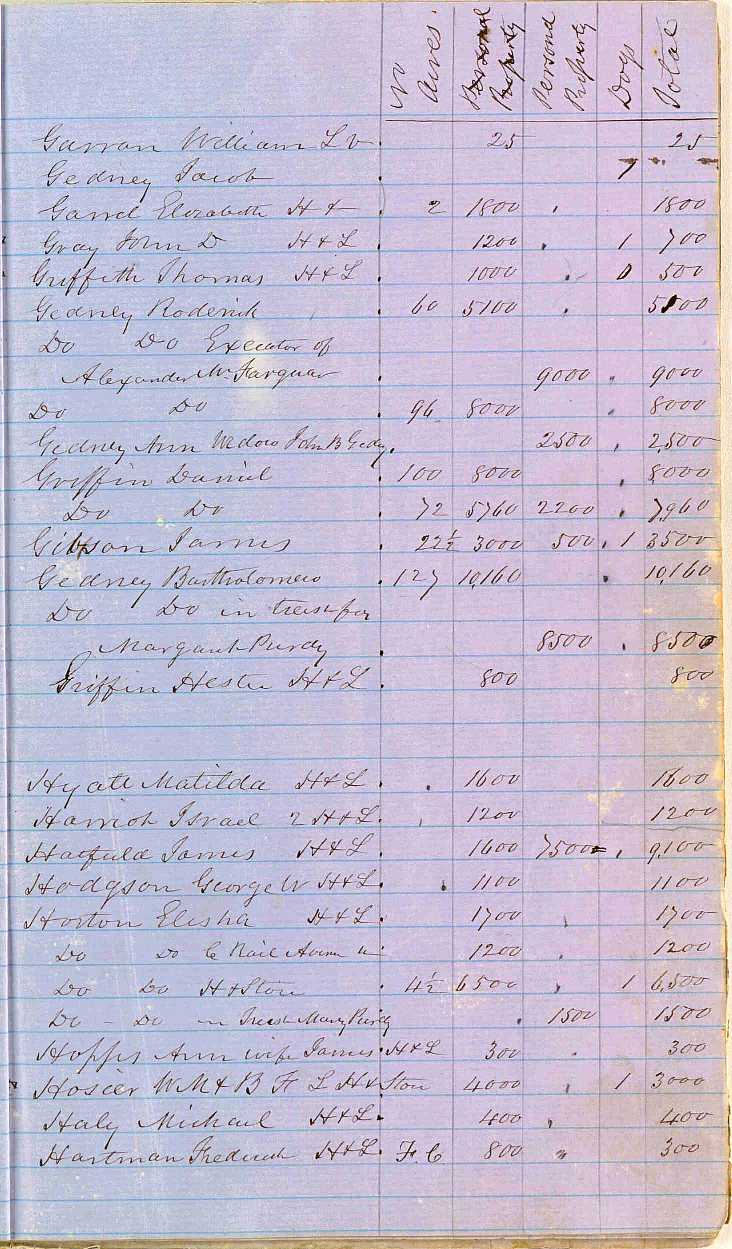 No Acres. Personal Property Personal Property Dogs Total
Garran William L 25 25
Gedney Jacob 1
Gaird Elizabeth H & 2 1800 1800
Gray John D H & L 1200 1 700
Griffith Thomas H & L 1000 500
Gedney Roderick 60 5100 5100
Do Do Executor of
Alexander McFarquar 9000 9000
Do Do 96 8000 8000
Gedney Ann Widow John B Gedy 2500 2,500
Griffin Daniel 100 8000 8,000
Do Do 72 5760 2200 7,960
Gibson James 22½ 3000 500 1 3500
Gedney Bartholomew 127 10,160 10,160
Do Do in trust for
Margaret Purdy 8500 8500
Griffin Hester H & L 800 800
Hyatt Matilda H & L 1600 1600
Israel 2 H & L 1200 1200
Hatfield James H & L 1600 7500 9,100
Hodgson George W H & L 1100 1100
Horton Elisha H & L 1700 1700
Do Do 1200 1200
Do Do H & Store 4½ 6500 1 6,500
Do - Do in Trust Mary Purdy 1500 1500
Hoppes Ann wife James H & L 300 300
Hosier W M & B F L H & Store 4000 1 3000
Haly Michael H & L 400 400
Hartman Frederick H & L F. C 800 300